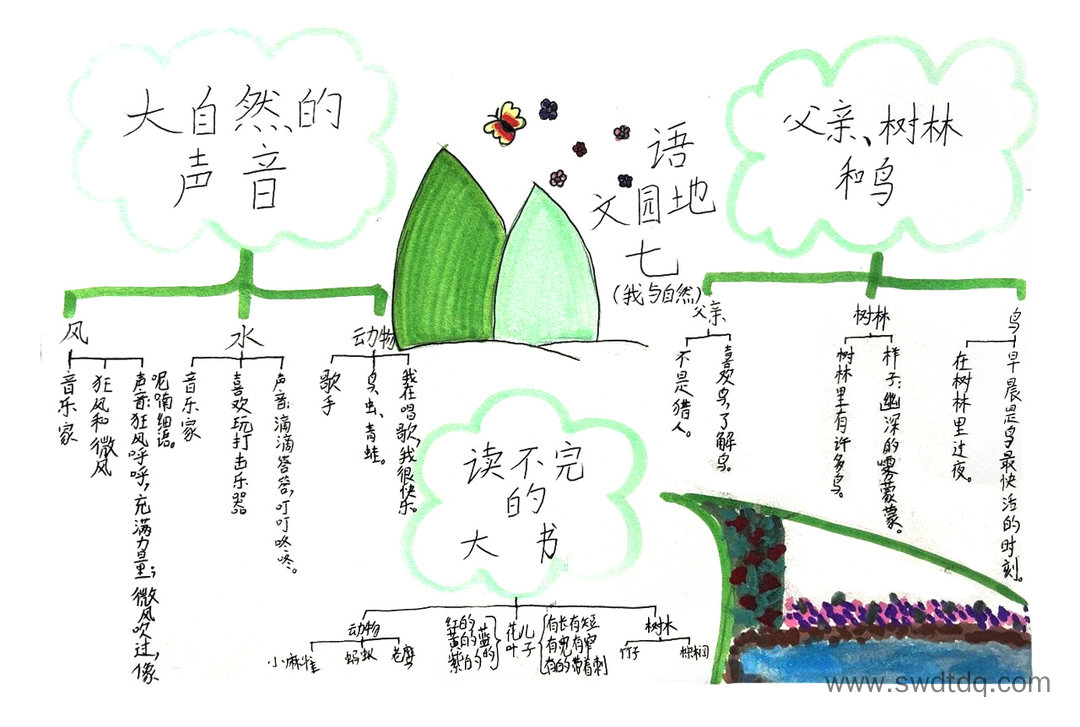 大自然的
声音
风
音乐家
狂风和微风
声音:狂风呼呼,充满力量;微风吹过,像
呢喃细语。
水
音乐家
喜欢玩打击乐器。
声音:滴滴答答,叮叮咚咚。
动物
歌手
鸟、虫、青蛙。
我在唱歌,我很快乐。
语
文园地
七
(我与自然)
父亲、树林
和鸟
父亲
不是猎人。
喜欢鸟,了解鸟。
树林
树林里有许多鸟。
样子:幽深的雾蒙蒙。
鸟
在树林里过夜。
早晨是鸟最快活的时刻。
读不完
的
大书
动物
小麻雀
蚂蚁
老鹰
红的
黄的蓝
紫的的
花儿
叶子
有长有短
有宽有窄
有的带着刺
树木
竹子
梧桐
www.swdtdq.com